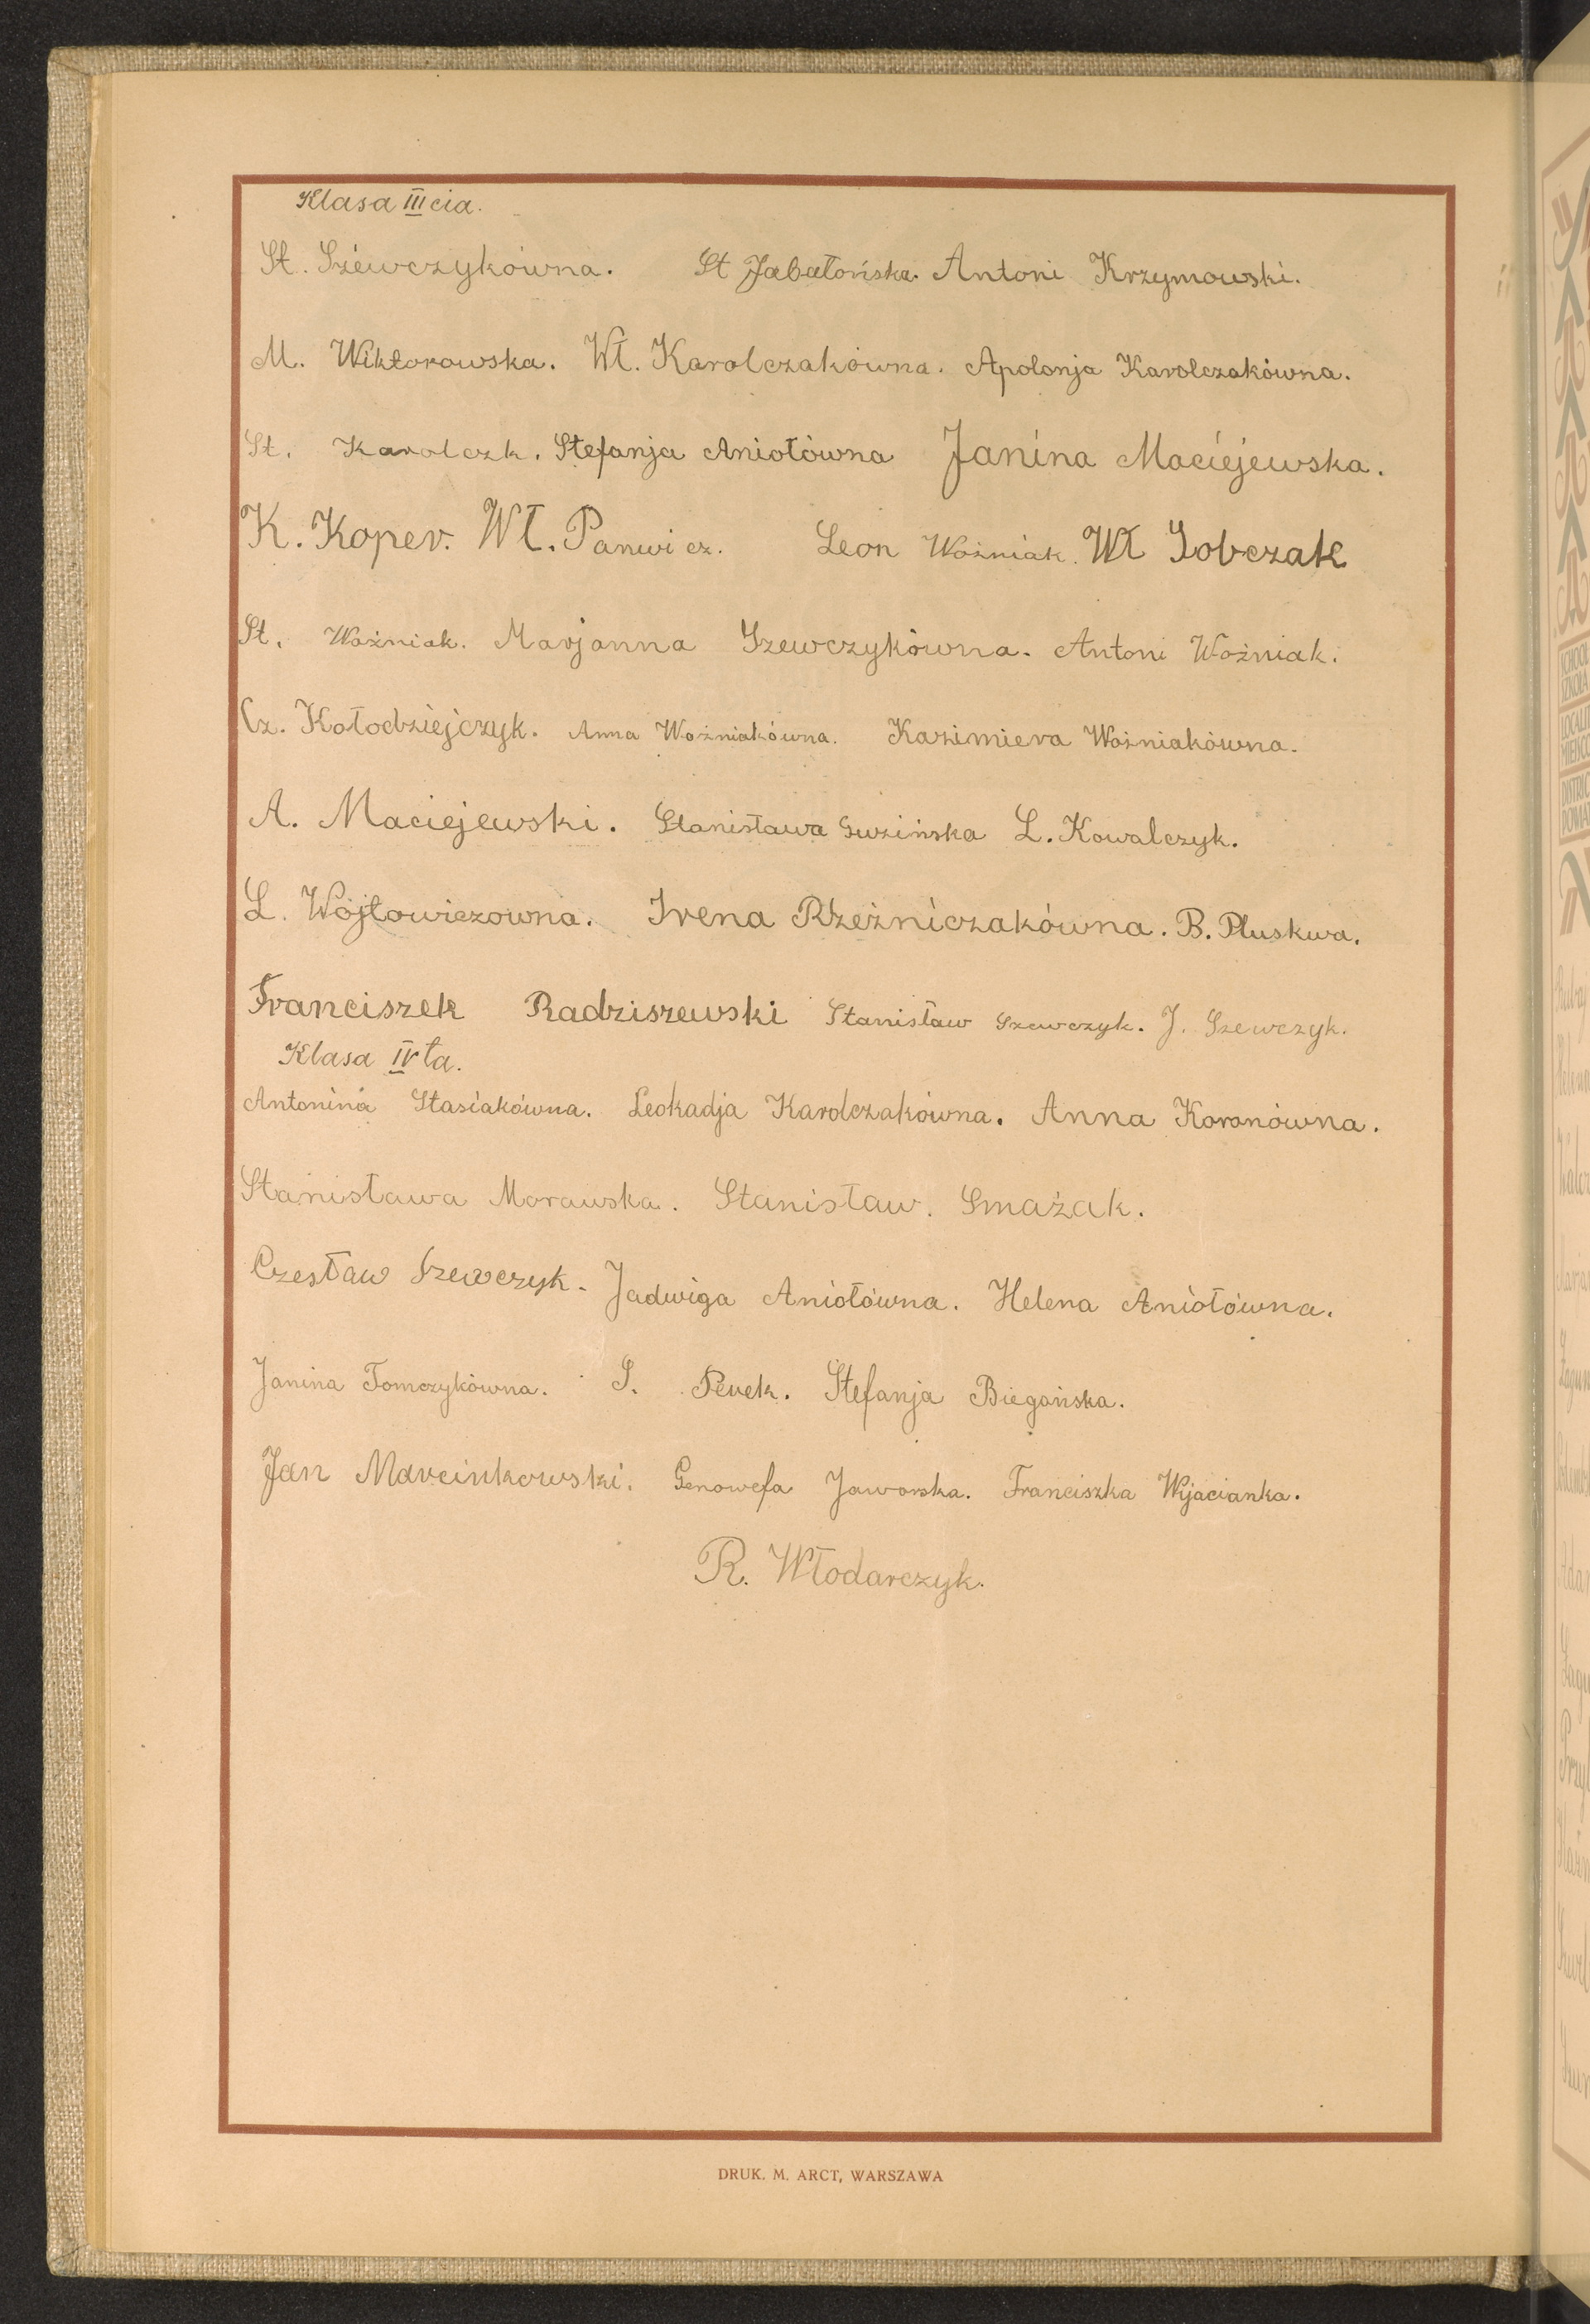 Klasa III cia.
St. Szewczykówna. St Jabałońska. Antoni Krzymowski.
M. Wiktorowska. Wł. Karolczakówna. Apolonja Karolczakówna.
St. Karolczk. Stefanja Aniołówna Janina Maciejewska.
K. Koper. Wł. Panwicz. Leon Woźniak. Wł Sobczak
St. Woźniak. Marjanna Szewczykówna. Antoni Woźniak.
Cz. Kołodziejczyk. Anna Woźniakówna. Kazimiera Woźniakówna.
A. Maciejewski. Stanisława Guzińska L. Kowalczyk.
L. Wójtowiczowna. Irena Rzeźniczakówna. B. Pluskwa.
Franciszek Radziszewski Stanisław Szewczyk. J. Szewczyk.
Klasa IV ta.
Antonina Stasiakówna. Leokadja Karolczakówna. Anna Koronówna.
Stanisława Morawska. Stanisław. Smażak.
Czesław Szewczyk. Jadwiga Aniołówna. Helena Aniołówna.
Janina Tomczykówna. S. Perek. Stefanja Biegańska.
Jan Marcinkowski. Genowefa Jaworska. Franciszka Wjacianka.
R. Włodarczyk.
DRUK. M. ARCT, WARSZAWA